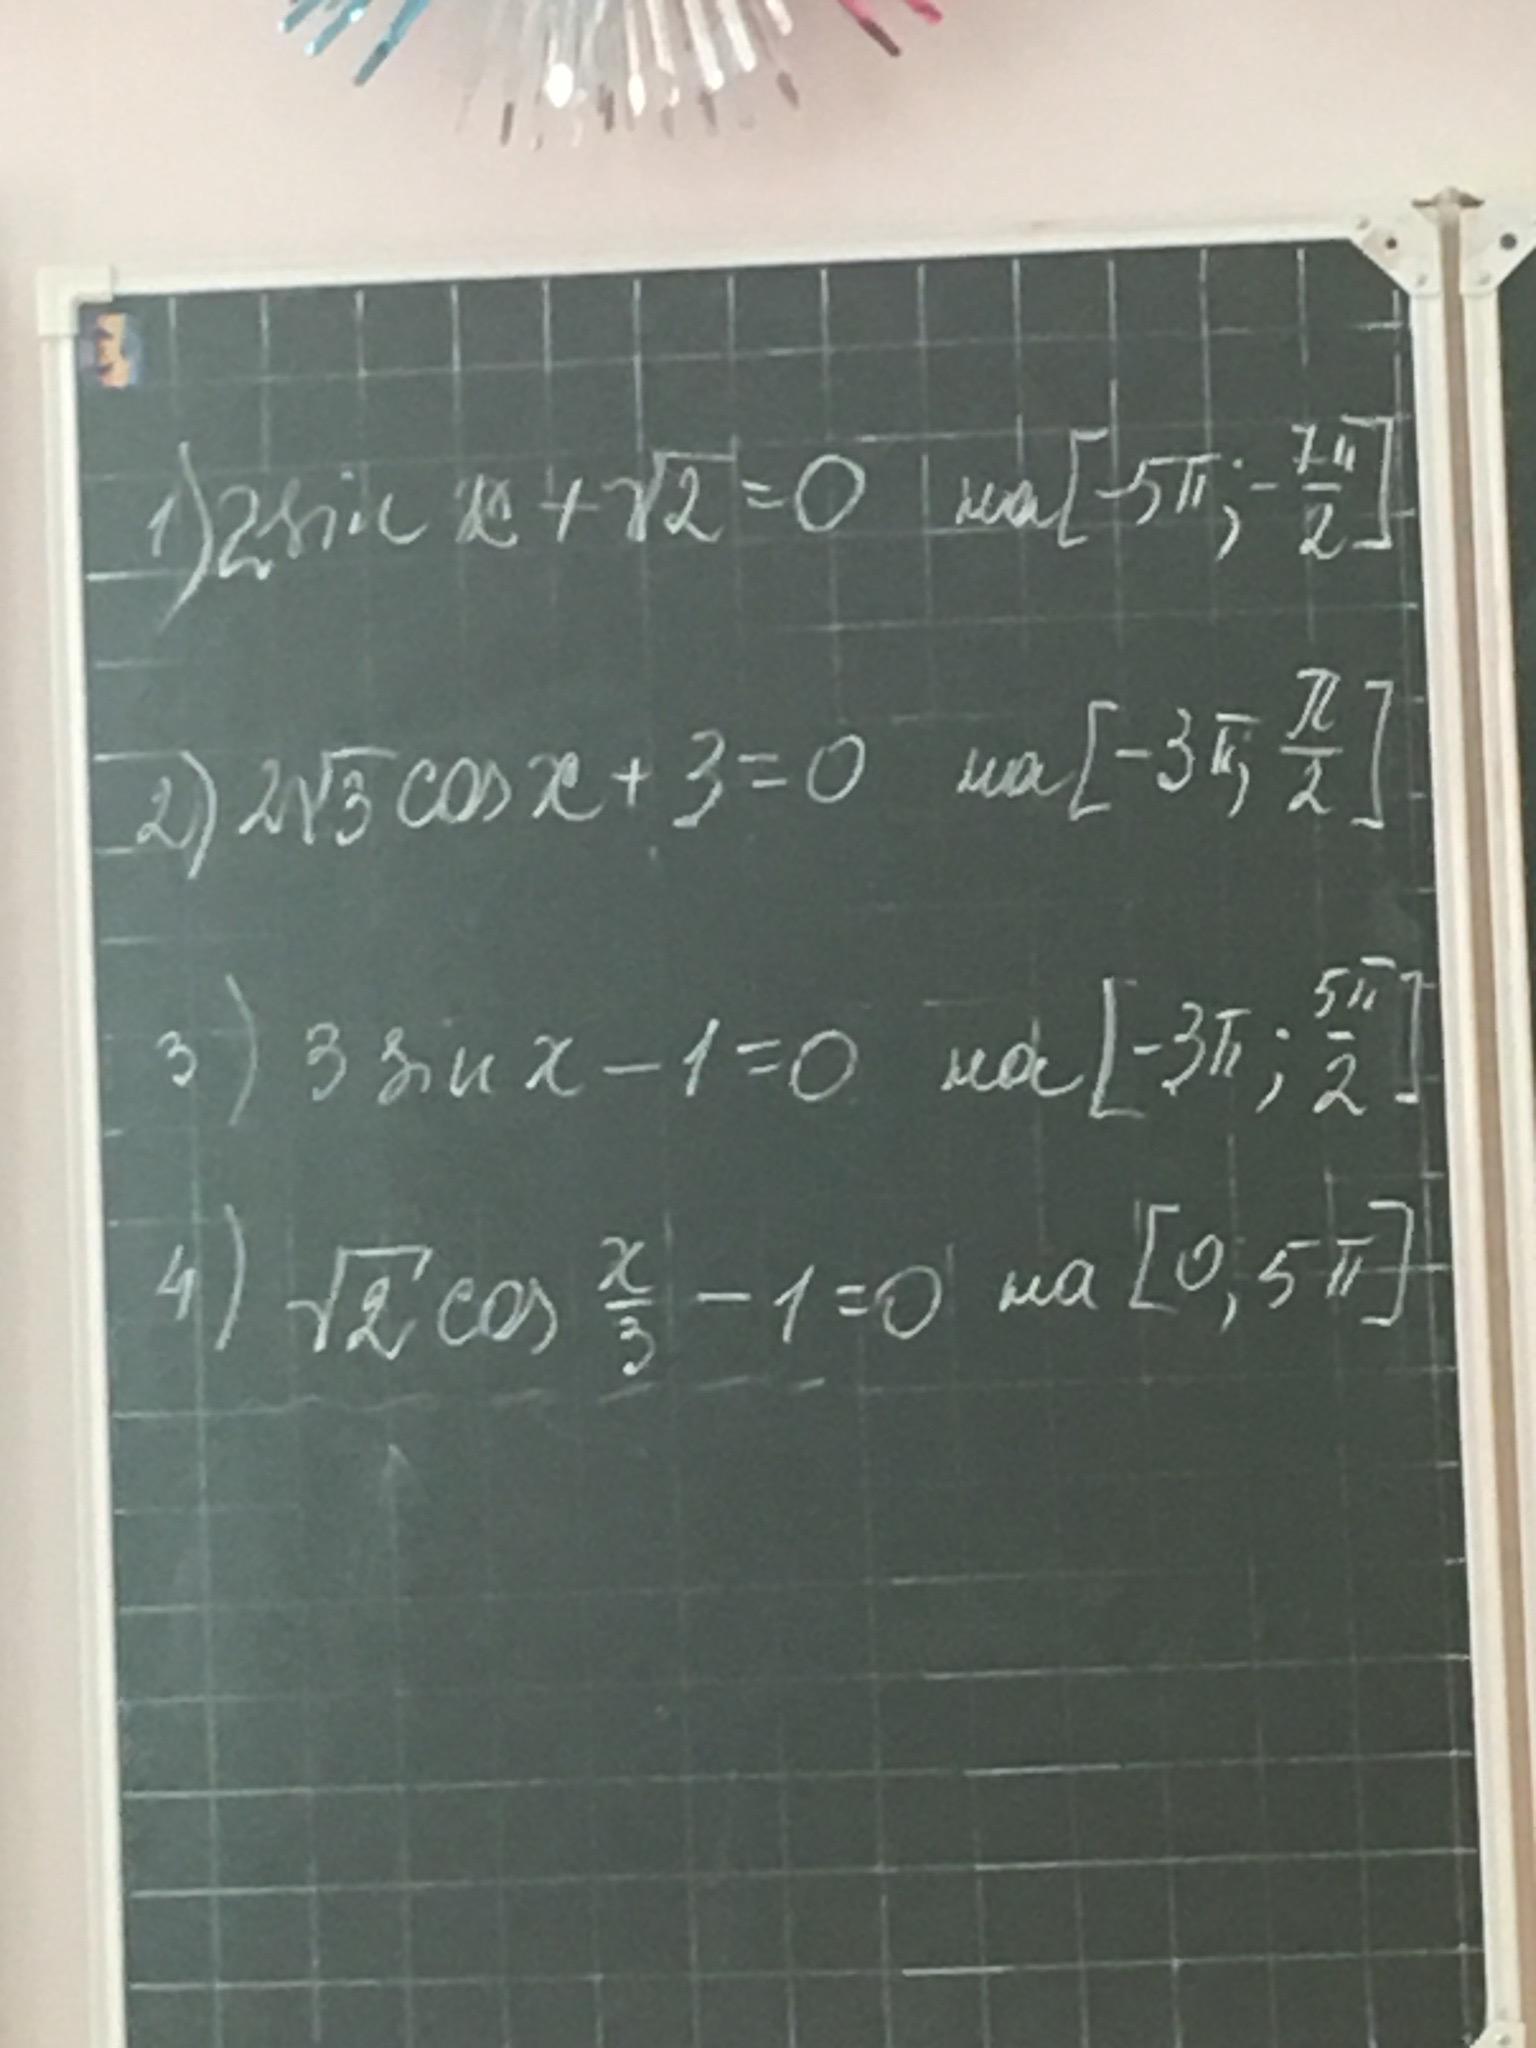 1) 2 sin x + √2 = 0 на [-5π; -7π/2]
2) 2√3 cos x + 3 = 0 на [-3π; π/2]
3) 3 sin x - 1 = 0 на [-3π; 5π/2]
4) √2 cos x/3 - 1 = 0 на [0, 5π]